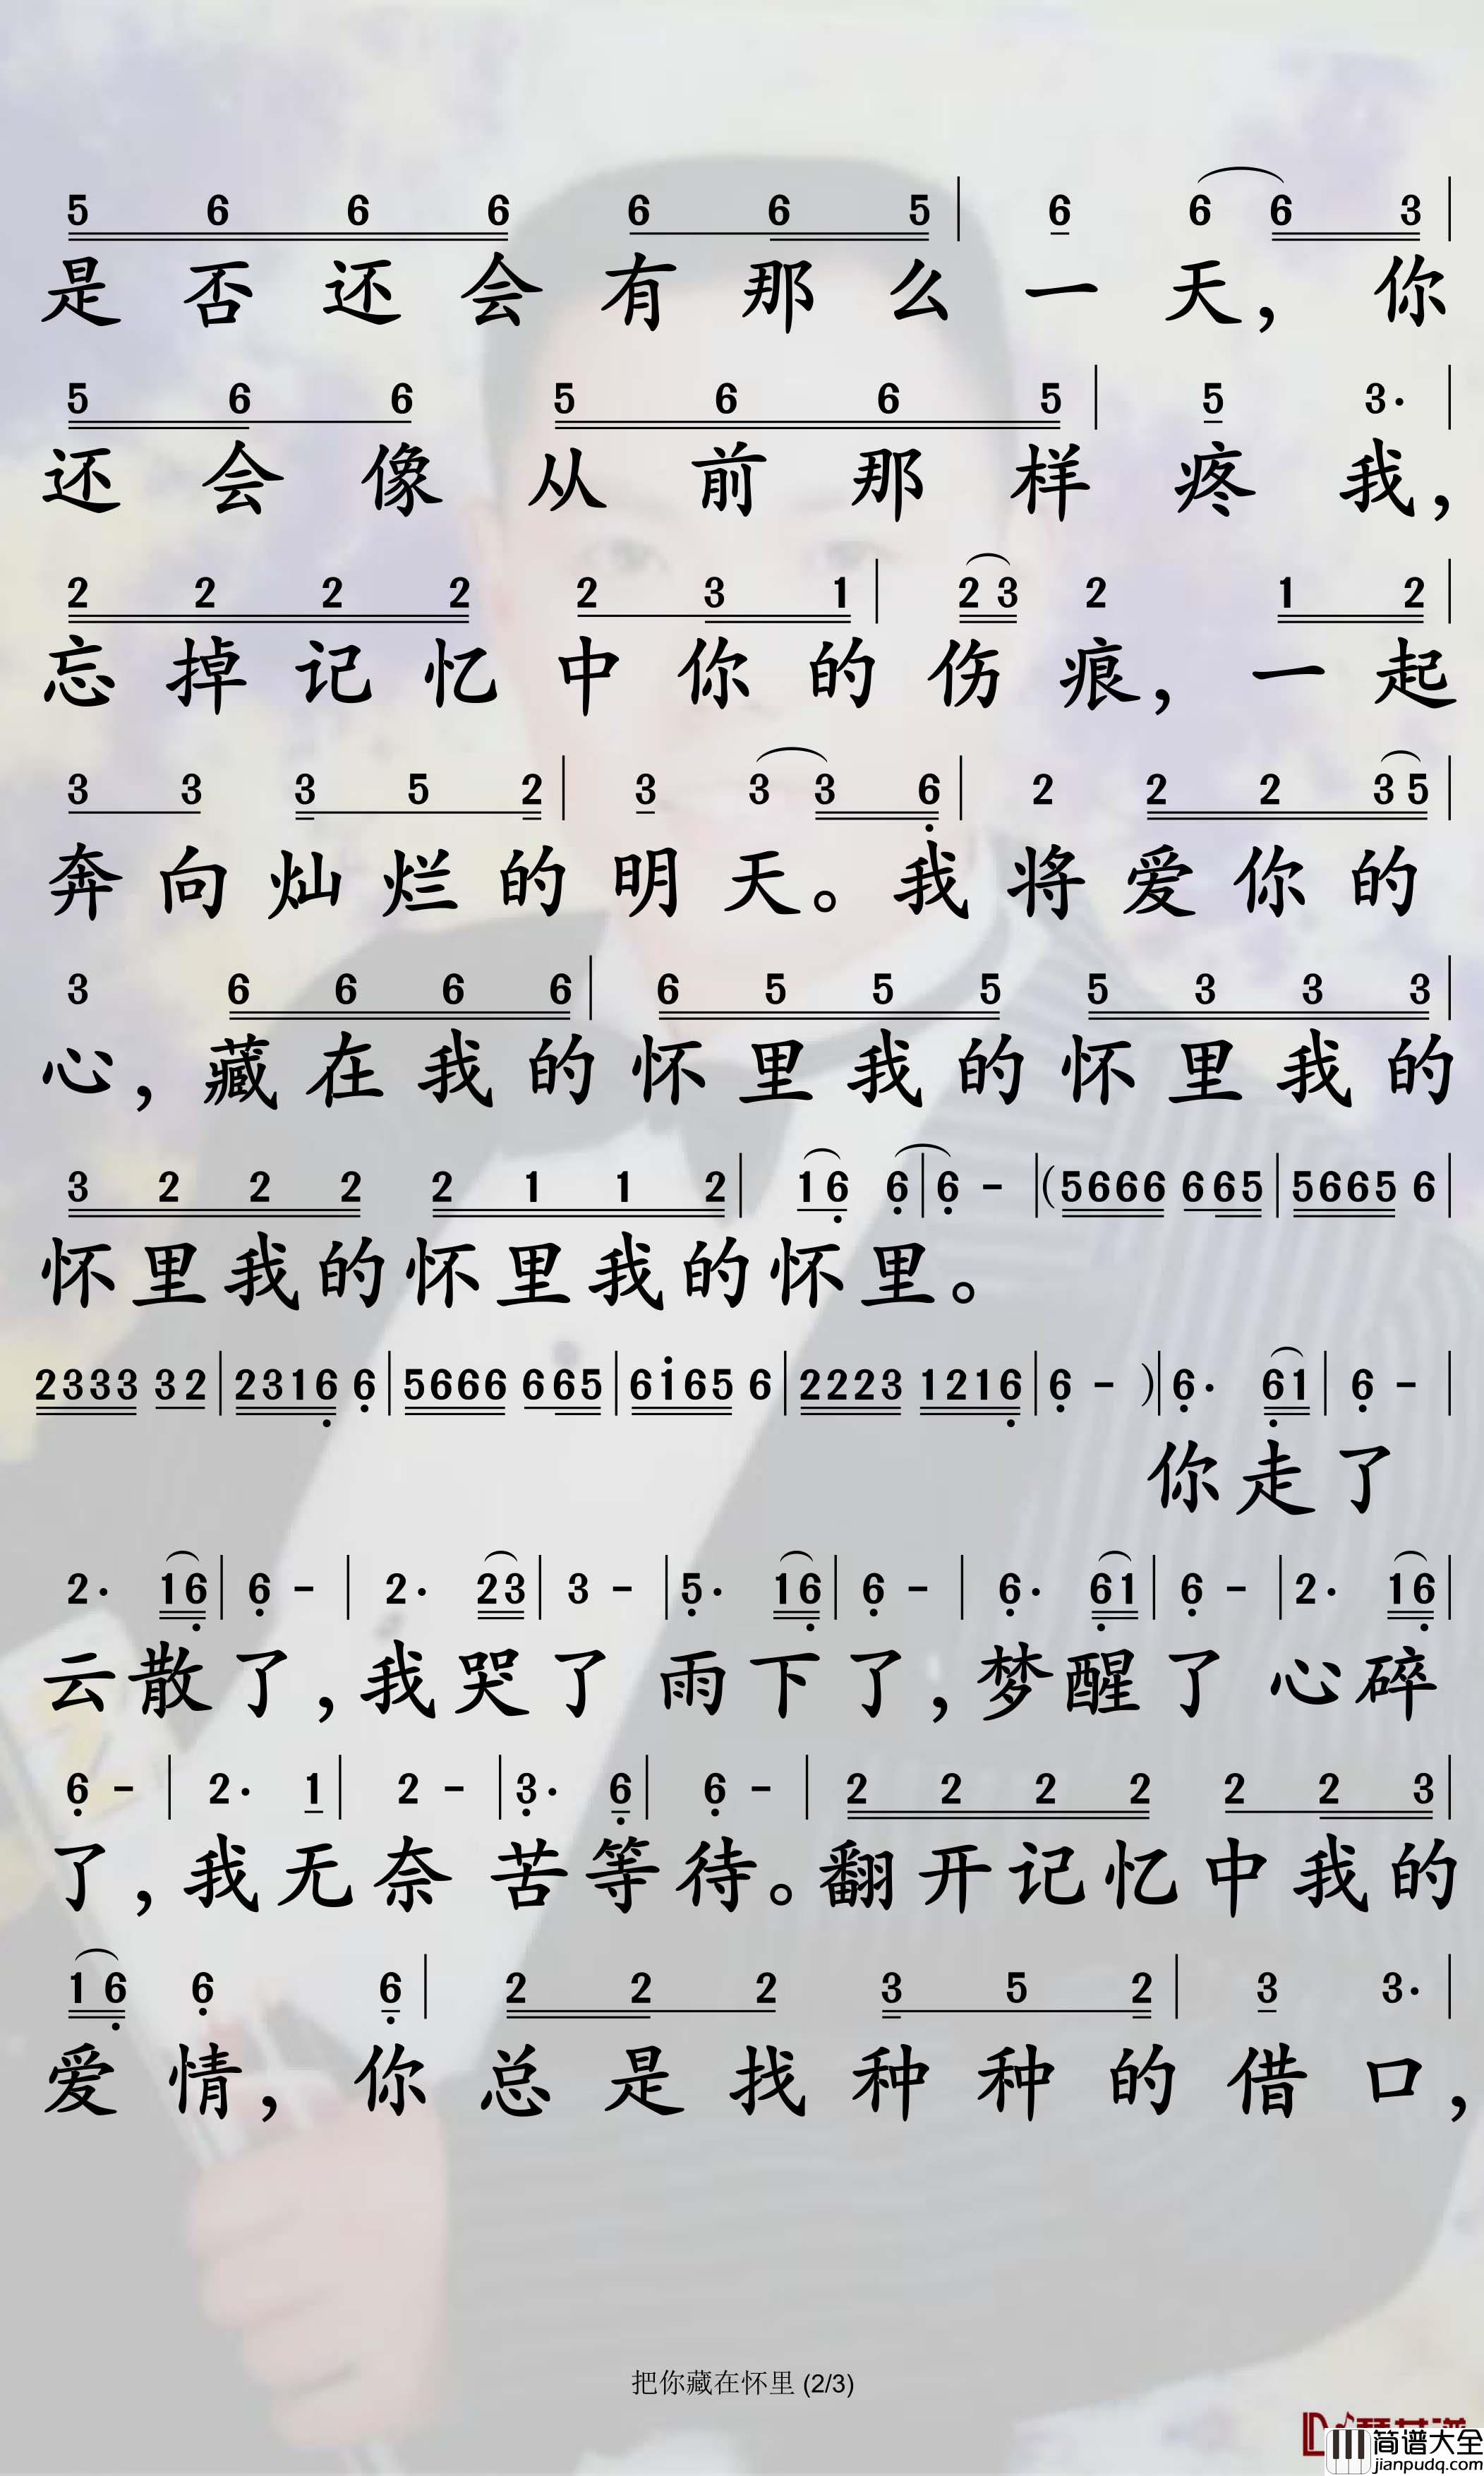 5 6 6 6 6 6 5 | 6 6 6 3 |
是否还会有那么一天，你
5 6 6 5 6 6 5 | 5 3· |
还会像从前那样疼我，
2 2 2 2 2 3 1 | 2 3 2 1 2 |
忘掉记忆中你的伤痕，一起
3 3 3 5 2 | 3 3 3 6 | 2 2 2 3 5 |
奔向灿烂的明天。我将爱你的
3 6 6 6 6 | 6 5 5 5 5 3 3 3 |
心，藏在我的怀里我的怀里我的
3 2 2 2 2 1 1 2 | 1 6 6 | 6 - | (5666 665 | 5665 6 |
怀里我的怀里我的怀里。
2333 32 | 2316 6 | 5666 665 | 6i65 6 | 2223 1216 | 6 - ) | 6· 61 | 6 - |
你走了
2· 16 | 6 - | 2· 23 | 3 - | 5· 16 | 6 - | 6· 61 | 6 - | 2· 16 |
云散了，我哭了 雨下了，梦醒了 心碎
6 - | 2· 1 | 2 - | 3· 6 | 6 - | 2 2 2 2 2 2 3 |
了，我无奈 苦等待。翻开记忆中我的
1 6 6 6 | 2 2 2 3 5 2 | 3 3· |
爱情，你总是找种种的借口，
把你藏在怀里 (2/3)
简谱大全
jianpudq.com